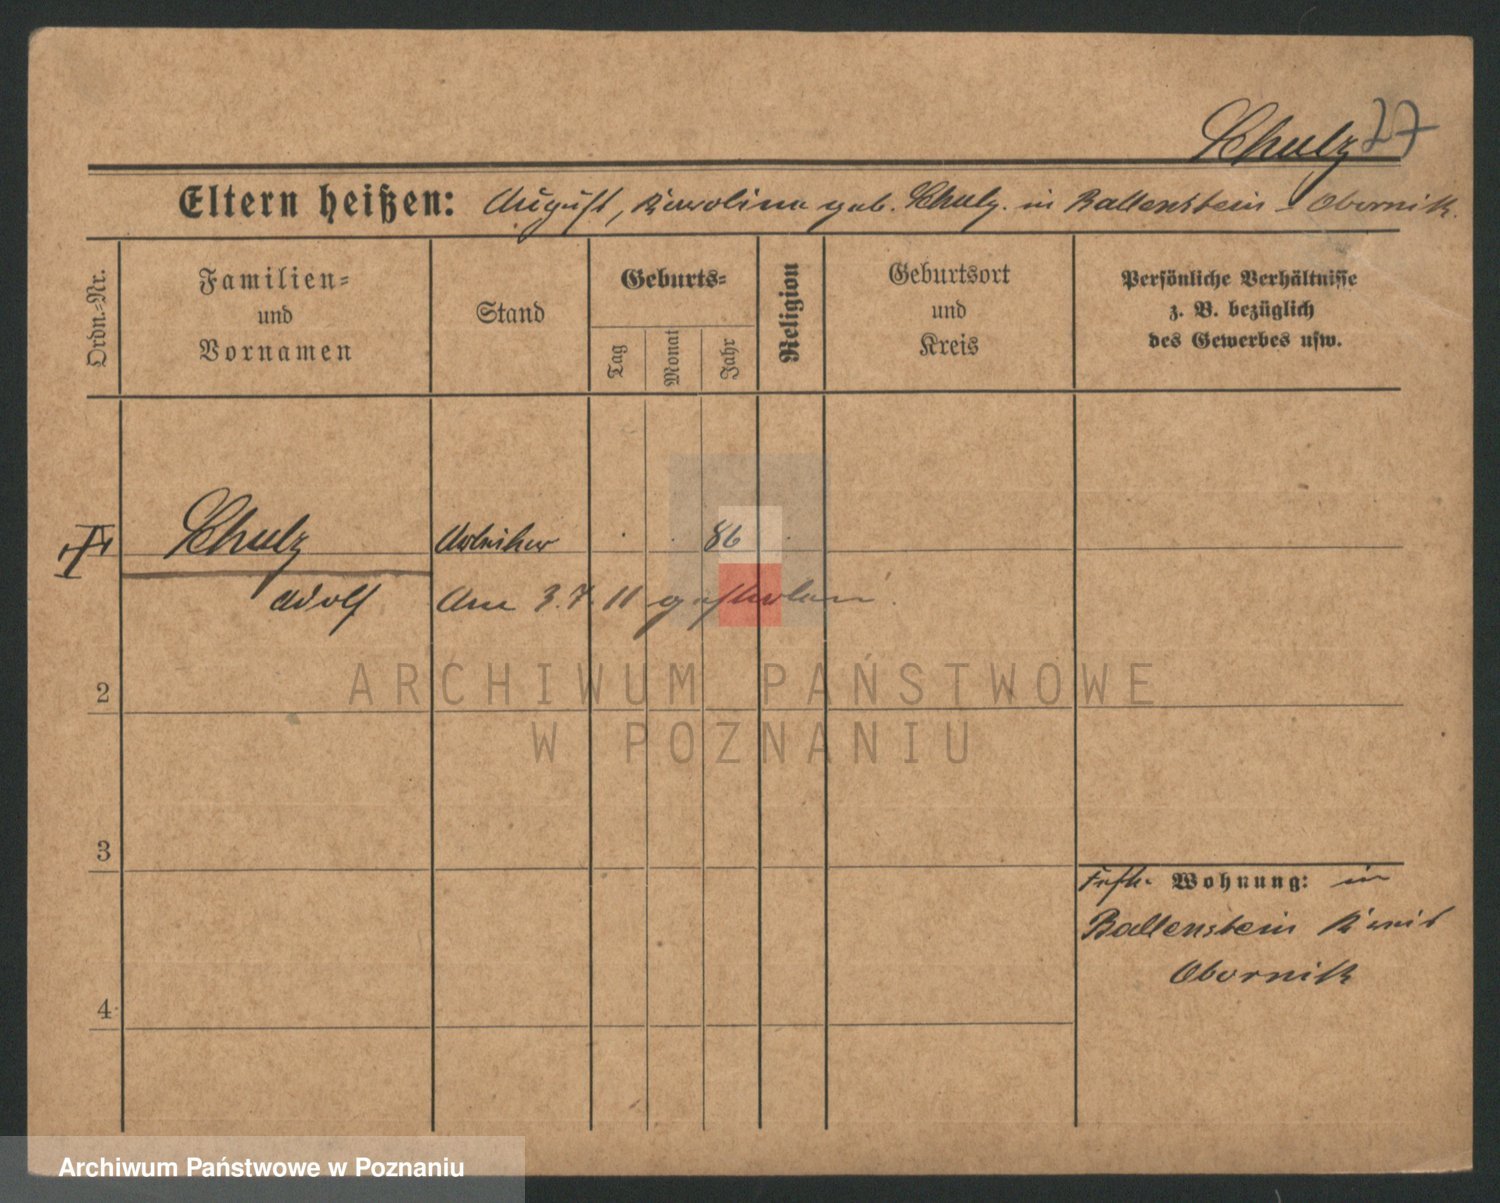 Schulz 27
Eltern heißen: August, Karolina geb. Schulz. in Ballenstein - Obornik.
Ordn.-Nr.
Familien-
und
Vornamen
Stand
Geburts-
Tag
Monat
Jahr
Religion
Geburtsort
und
Kreis
Persönliche Verhältnisse
z. B. bezüglich
des Gewerbes usw.
Schulz Arbeiter 86
Adolf Am 3.7.11 gestorben.
ARCHIWUM PAŃSTWOWE
2
W POZNANIU
3
Wohnung: in
Ballenstein Kreis
Obornik
4
Archiwum Państwowe w Poznaniu